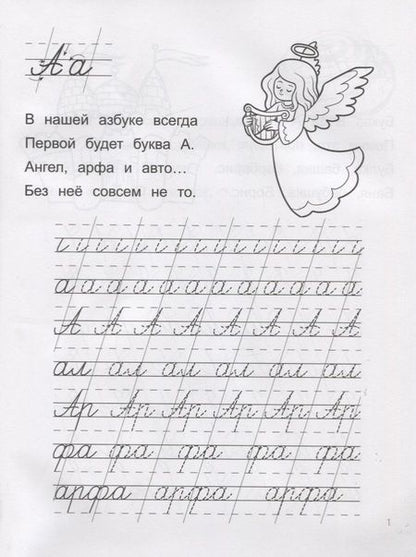 Аа
В нашей азбуке всегда
Первой будет буква А.
Ангел, арфа и авто...
Без неё совсем не то.
и и и и и и и и и и и и и и
а а а а а а а а а а а а
А А А А А А А А
ал ал ал ал ал ал
Ар Ар Ар Ар Ар Ар
фа фа фа фа фа
арфа арфа арфа
1